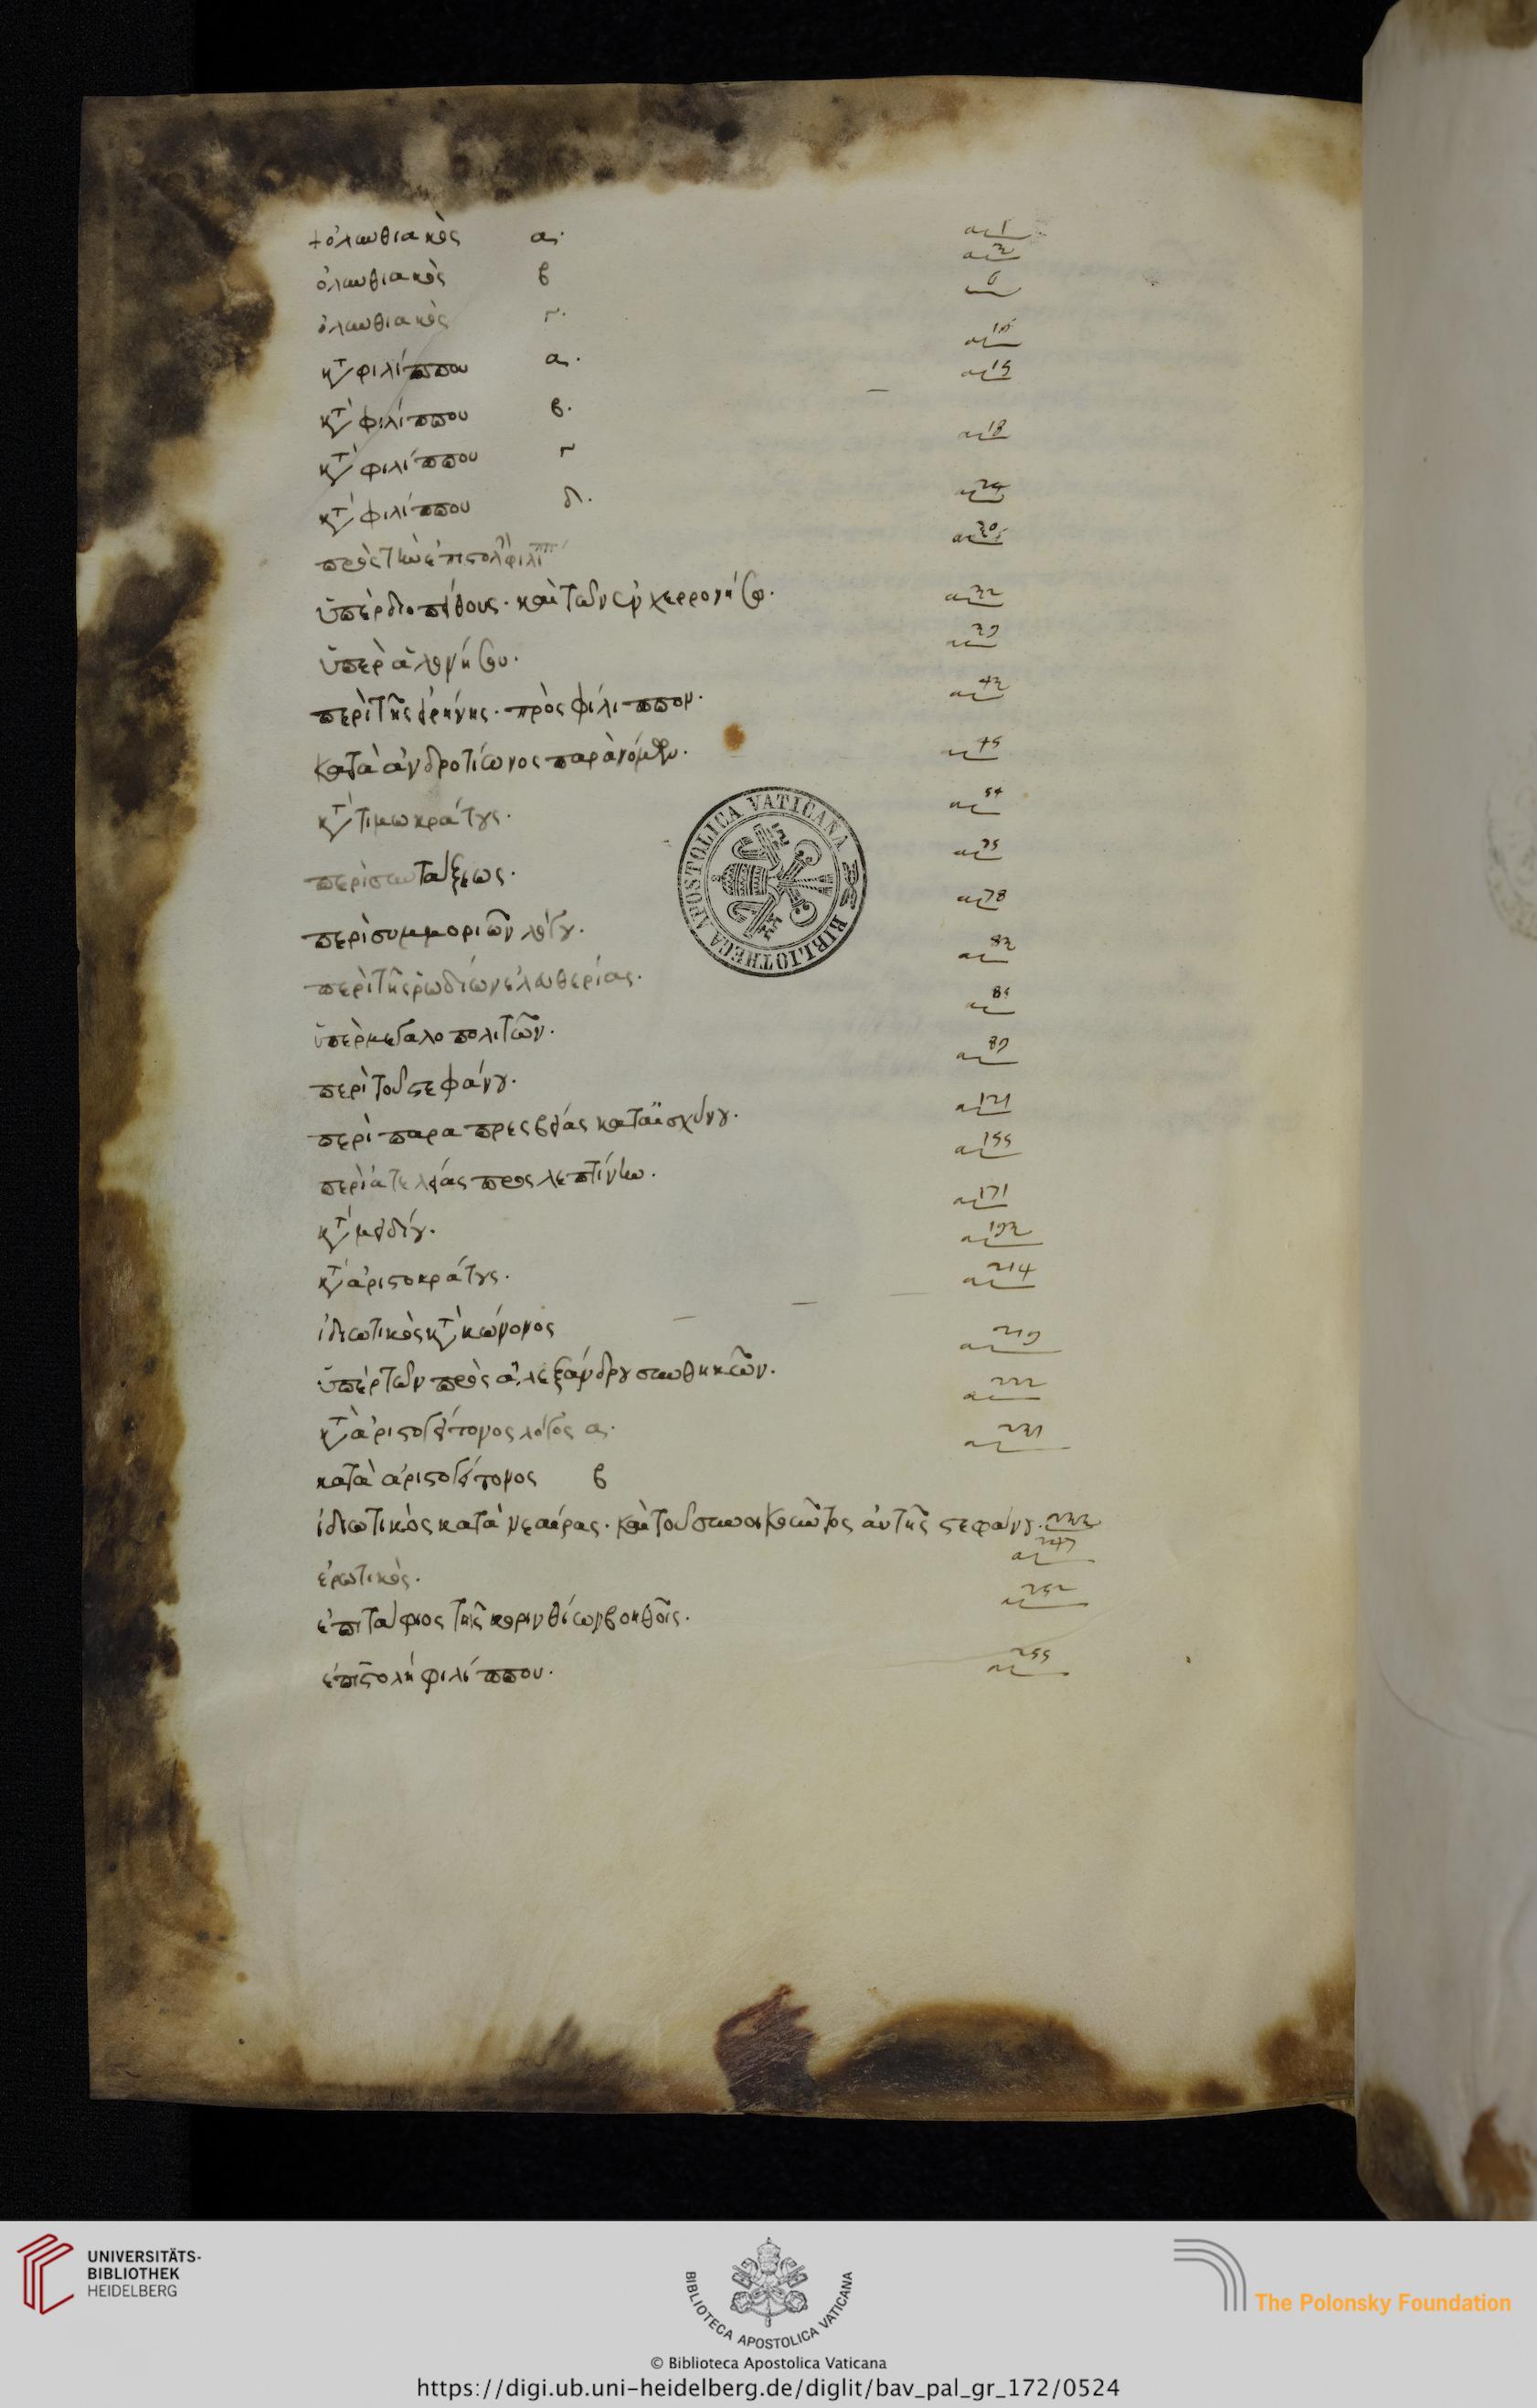 + ὀλυνθιακὸς α· 1
ὀλυνθιακὸς β
ὀλυνθιακὸς γ· 6
κτ φιλίππου α·
κτ φιλίππου β· 15
κτ φιλίππου γ 18
κτ φιλίππου δ· 24
πρὸς τὴν ἐπιστολ φιλιππ 30
ὑπὲρ διοπείθους· καὶ τῶν ἐν χερρονήσω· 32
ὑπὲρ ἁλονήσου· 39
περὶ τῆς εἰρήνης· πρὸς φίλιππον· 43
κατὰ ἀνδροτίωνος παρανόμων· 45
κτ τιμωκράτους· 54
περὶ συντάξεως· 75
περὶ συμμοριῶν λόγου· 78
περὶ τῆς ῥωδίων ἐλευθερίας· 83
ὑπὲρ μεγαλοπολιτῶν· 85
περὶ τοῦ στεφάνου· 89
περὶ παραπρεσβείας κατ αἰσχύνου· 121
περὶ ἀτελείας προς λεπτίνην· 155
κτ μειδίου· 171
κτ ἀριστοκράτους· 193
ἰδιωτικὸς κτ κώνονος 214
ὑπὲρ τῶν πρὸς ἀλεξάνδρου συνθηκῶν· 219
κτ ἀριστογείτονος λόγος α· 222
κατὰ ἀριστογείτονος β 231
ἰδιωτικὸς κατὰ νεαίρας· καὶ τοῦ συνοικοῦντος αὐτῆς στεφάνου·
ἐρωτικὸς· 247
ἐπιτάφιος τῆς κορινθίων βοηθοῖς· 252
ἐπιστολὴ φιλίππου· 255
BIBLIOTHECA APOSTOLICA VATICANA
UNIVERSITÄTS-
BIBLIOTHEK
HEIDELBERG
BIBLIOTECA APOSTOLICA VATICANA
The Polonsky Foundation
© Biblioteca Apostolica Vaticana
https://digi.ub.uni-heidelberg.de/diglit/bav_pal_gr_172/0524